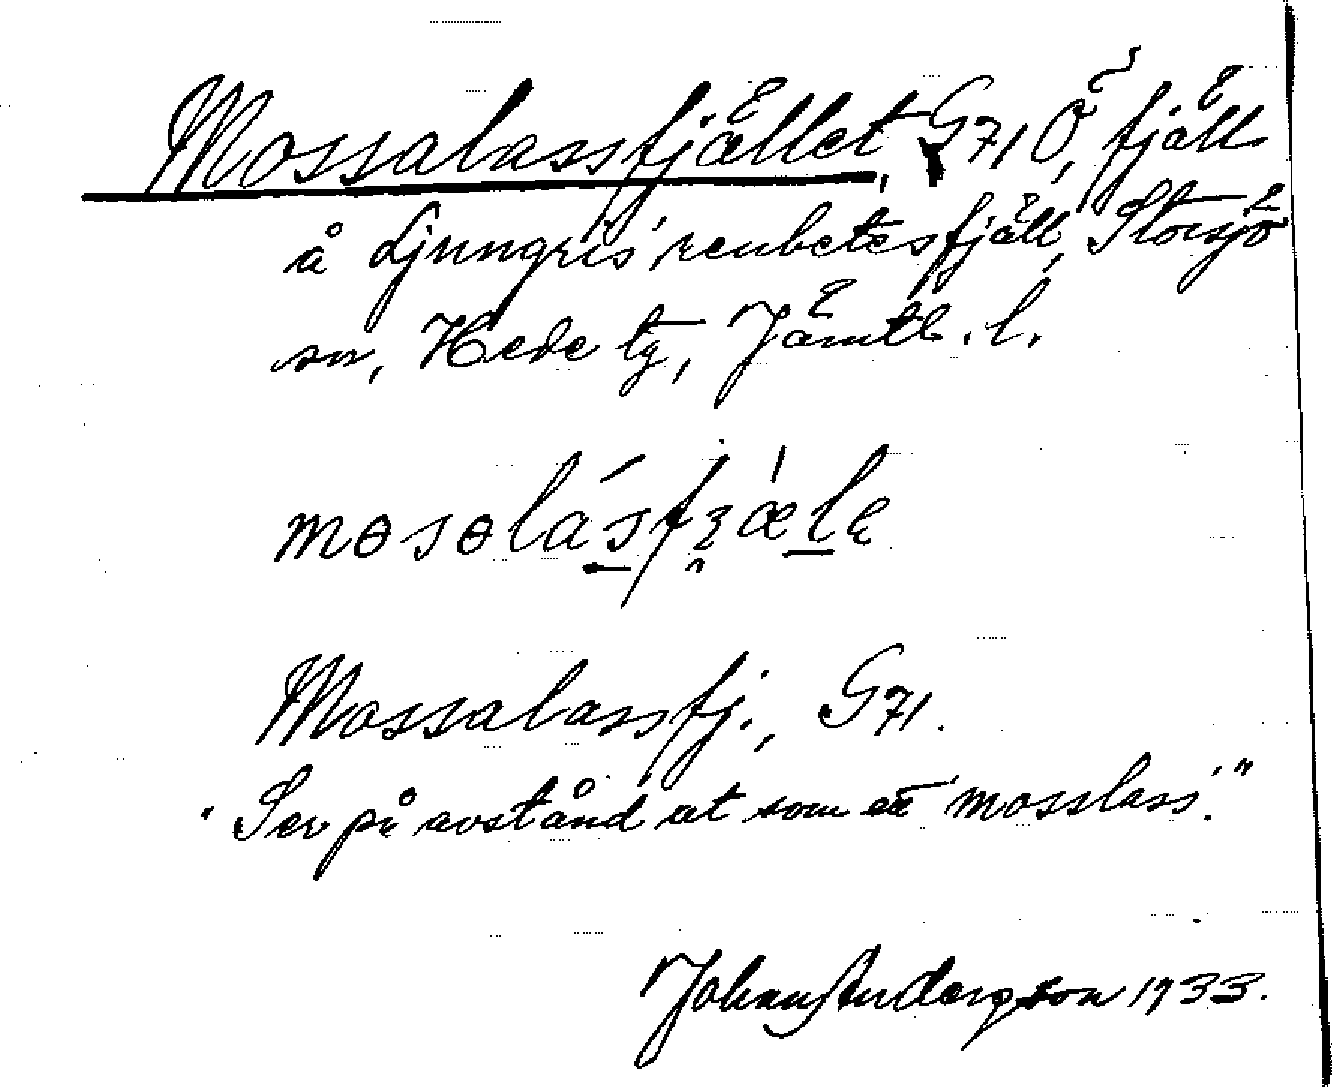 Mossalassfjället, G71Ö, fjäll
å Ljungris renbetesfjäll, Storsjö
sn, Hede tg, Jämtl. l.
mɵsɵlásfȷæ̀lę
Mossalassfj., G71.
"Ser på avstånd ut som ett mosslass."
Johan Anderson 1933.